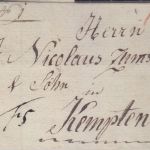 Herrn
Nicolaus
& Sohn
in
Kempten